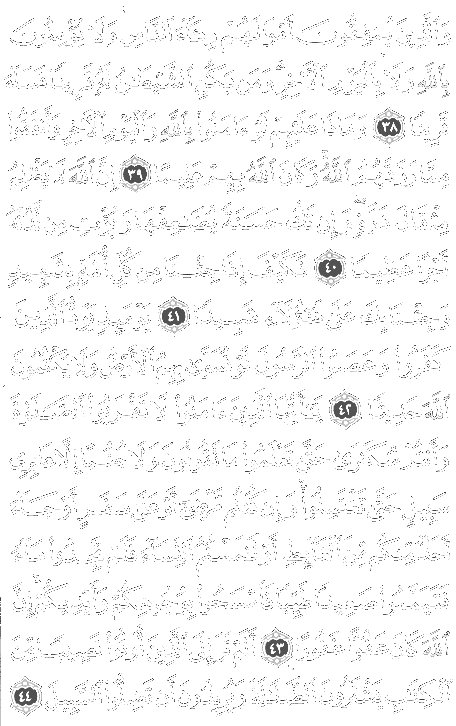 وَٱلَّذِينَ يُنفِقُونَ أَمْوَٰلَهُمْ رِئَآءَ ٱلنَّاسِ وَلَا يُؤْمِنُونَ
بِٱللَّهِ وَلَا بِٱلْيَوْمِ ٱلْءَاخِرِ وَمَن يَكُنِ ٱلشَّيْطَٰنُ لَهُۥ قَرِينًا فَسَآءَ
قَرِينًا ٣٨ وَمَاذَا عَلَيْهِمْ لَوْ ءَامَنُوا۟ بِٱللَّهِ وَٱلْيَوْمِ ٱلْءَاخِرِ وَأَنفَقُوا۟
مِمَّا رَزَقَهُمُ ٱللَّهُ وَكَانَ ٱللَّهُ بِهِمْ عَلِيمًا ٣٩ إِنَّ ٱللَّهَ لَا يَظْلِمُ
مِثْقَالَ ذَرَّةٍ وَإِن تَكُ حَسَنَةً يُضَٰعِفْهَا وَيُؤْتِ مِن لَّدُنْهُ
أَجْرًا عَظِيمًا ٤٠ فَكَيْفَ إِذَا جِئْنَا مِن كُلِّ أُمَّةٍۭ بِشَهِيدٍ
وَجِئْنَا بِكَ عَلَىٰ هَٰٓؤُلَآءِ شَهِيدًا ٤١ يَوْمَئِذٍ يَوَدُّ ٱلَّذِينَ
كَفَرُوا۟ وَعَصَوُا۟ ٱلرَّسُولَ لَوْ تُسَوَّىٰ بِهِمُ ٱلْأَرْضُ وَلَا يَكْتُمُونَ
ٱللَّهَ حَدِيثًا ٤٢ يَٰٓأَيُّهَا ٱلَّذِينَ ءَامَنُوا۟ لَا تَقْرَبُوا۟ ٱلصَّلَوٰةَ
وَأَنتُمْ سُكَٰرَىٰ حَتَّىٰ تَعْلَمُوا۟ مَا تَقُولُونَ وَلَا جُنُبًا إِلَّا عَابِرِى
سَبِيلٍ حَتَّىٰ تَغْتَسِلُوا۟ وَإِن كُنتُم مَّرْضَىٰٓ أَوْ عَلَىٰ سَفَرٍ أَوْ جَآءَ
أَحَدٌ مِّنكُم مِّنَ ٱلْغَآئِطِ أَوْ لَٰمَسْتُمُ ٱلنِّسَآءَ فَلَمْ تَجِدُوا۟ مَآءً
فَتَيَمَّمُوا۟ صَعِيدًا طَيِّبًا فَٱمْسَحُوا۟ بِوُجُوهِكُمْ وَأَيْدِيكُمْ إِنَّ
ٱللَّهَ كَانَ عَفُوًّا غَفُورًا ٤٣ أَلَمْ تَرَ إِلَى ٱلَّذِينَ أُوتُوا۟ نَصِيبًا مِّنَ
ٱلْكِتَٰبِ يَشْتَرُونَ ٱلضَّلَٰلَةَ وَيُرِيدُونَ أَن تَضِلُّوا۟ ٱلسَّبِيلَ ٤٤